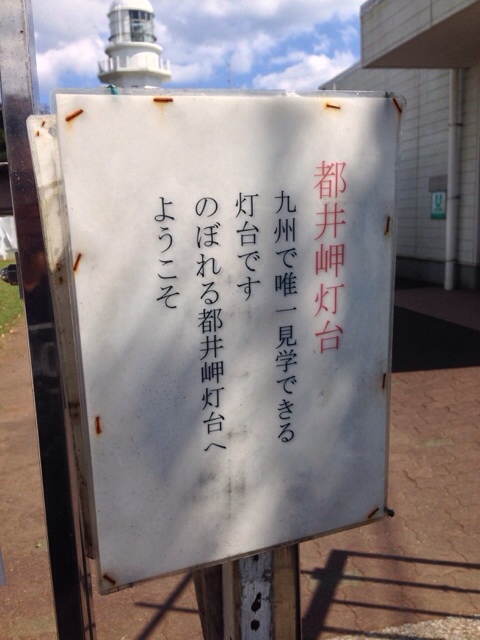 都井岬灯台
九州で唯一見学できる
灯台です
のぼれる都井岬灯台へ
ようこそ